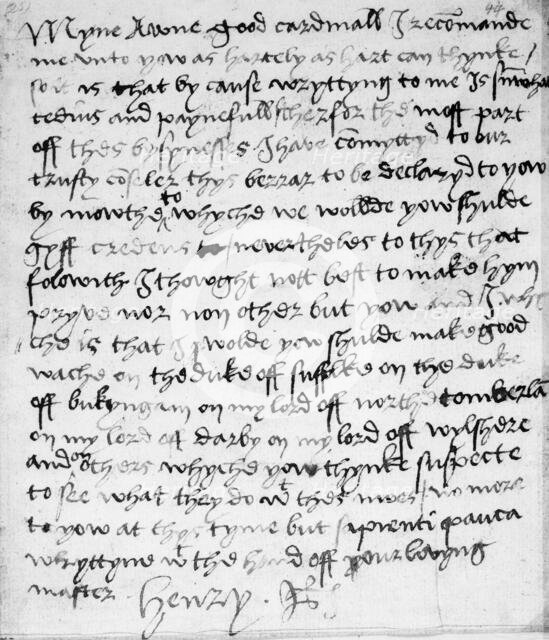 Myne Awne good cardinall I recomande
me unto yow as hartely as hart can thynke
so it is that by cause wryttyng to me is sumwhat
tedius and paynefull therfor the most part
off thes bysynesses I have comyttyd to our
trusty conseler thys berrar to be declaryd to yow
by mowthe to whyche we wollde yow shulde
gyff credens nevertheles to thys that
folowith I thowght nott best to make hym
pryve nor non other but yow and I whi
che is that I wolde yow shulde make good
wache on the duke off suffolke on the duke
off bukyngam on my lord off northe tomberla
on my lord off darby on my lord off wylshere
and on others whyche yow thynke suspecte
to see what they do wt thes news no more
to yow at thys tyme but sapienti pauca
wryttyne wt the hand off your lovyng
master Henry R